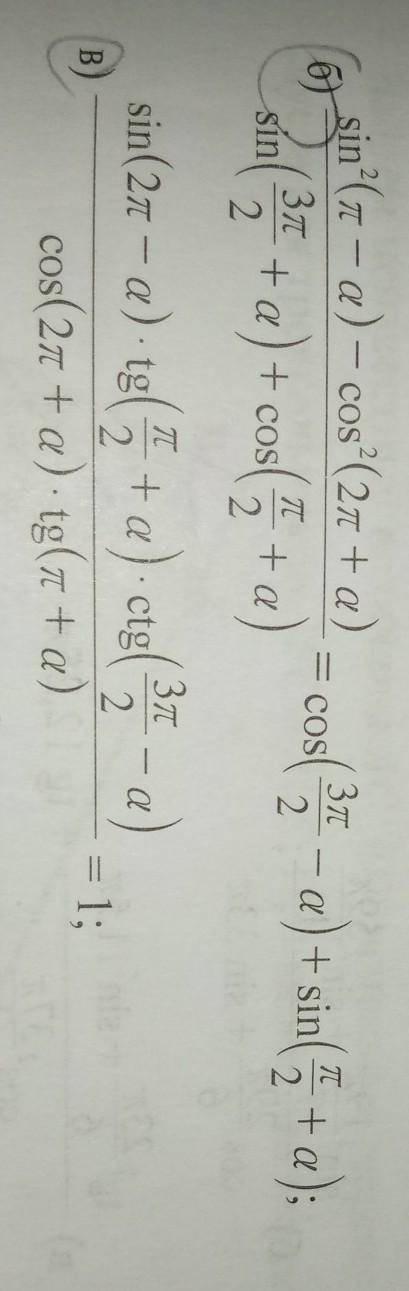 б) \frac{sin²(π − α) − cos²(2π + α)}{sin(\frac{3π}{2} + α) + cos(\frac{π}{2} + α)} = cos(\frac{3π}{2} − α) + sin(\frac{π}{2} + α);
в) \frac{sin(2π − α) · tg(\frac{π}{2} + α) · ctg(\frac{3π}{2} − α)}{cos(2π + α) · tg(π + α)} = 1;